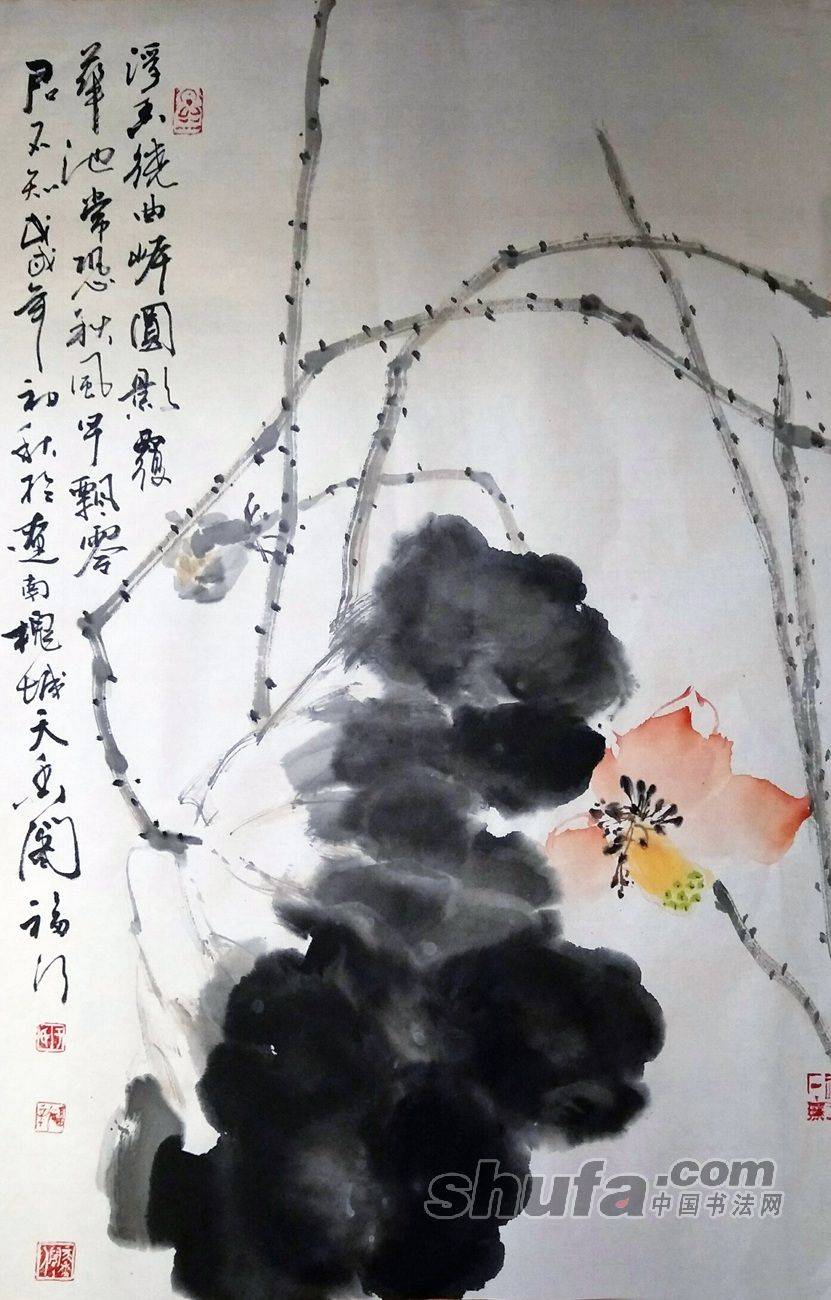 浮香繞曲岸圓影覆
華池常恐秋風早飄零
君不知戊戌年初秋於遼南槐城天香閣福行
shufa.com
中国书法网